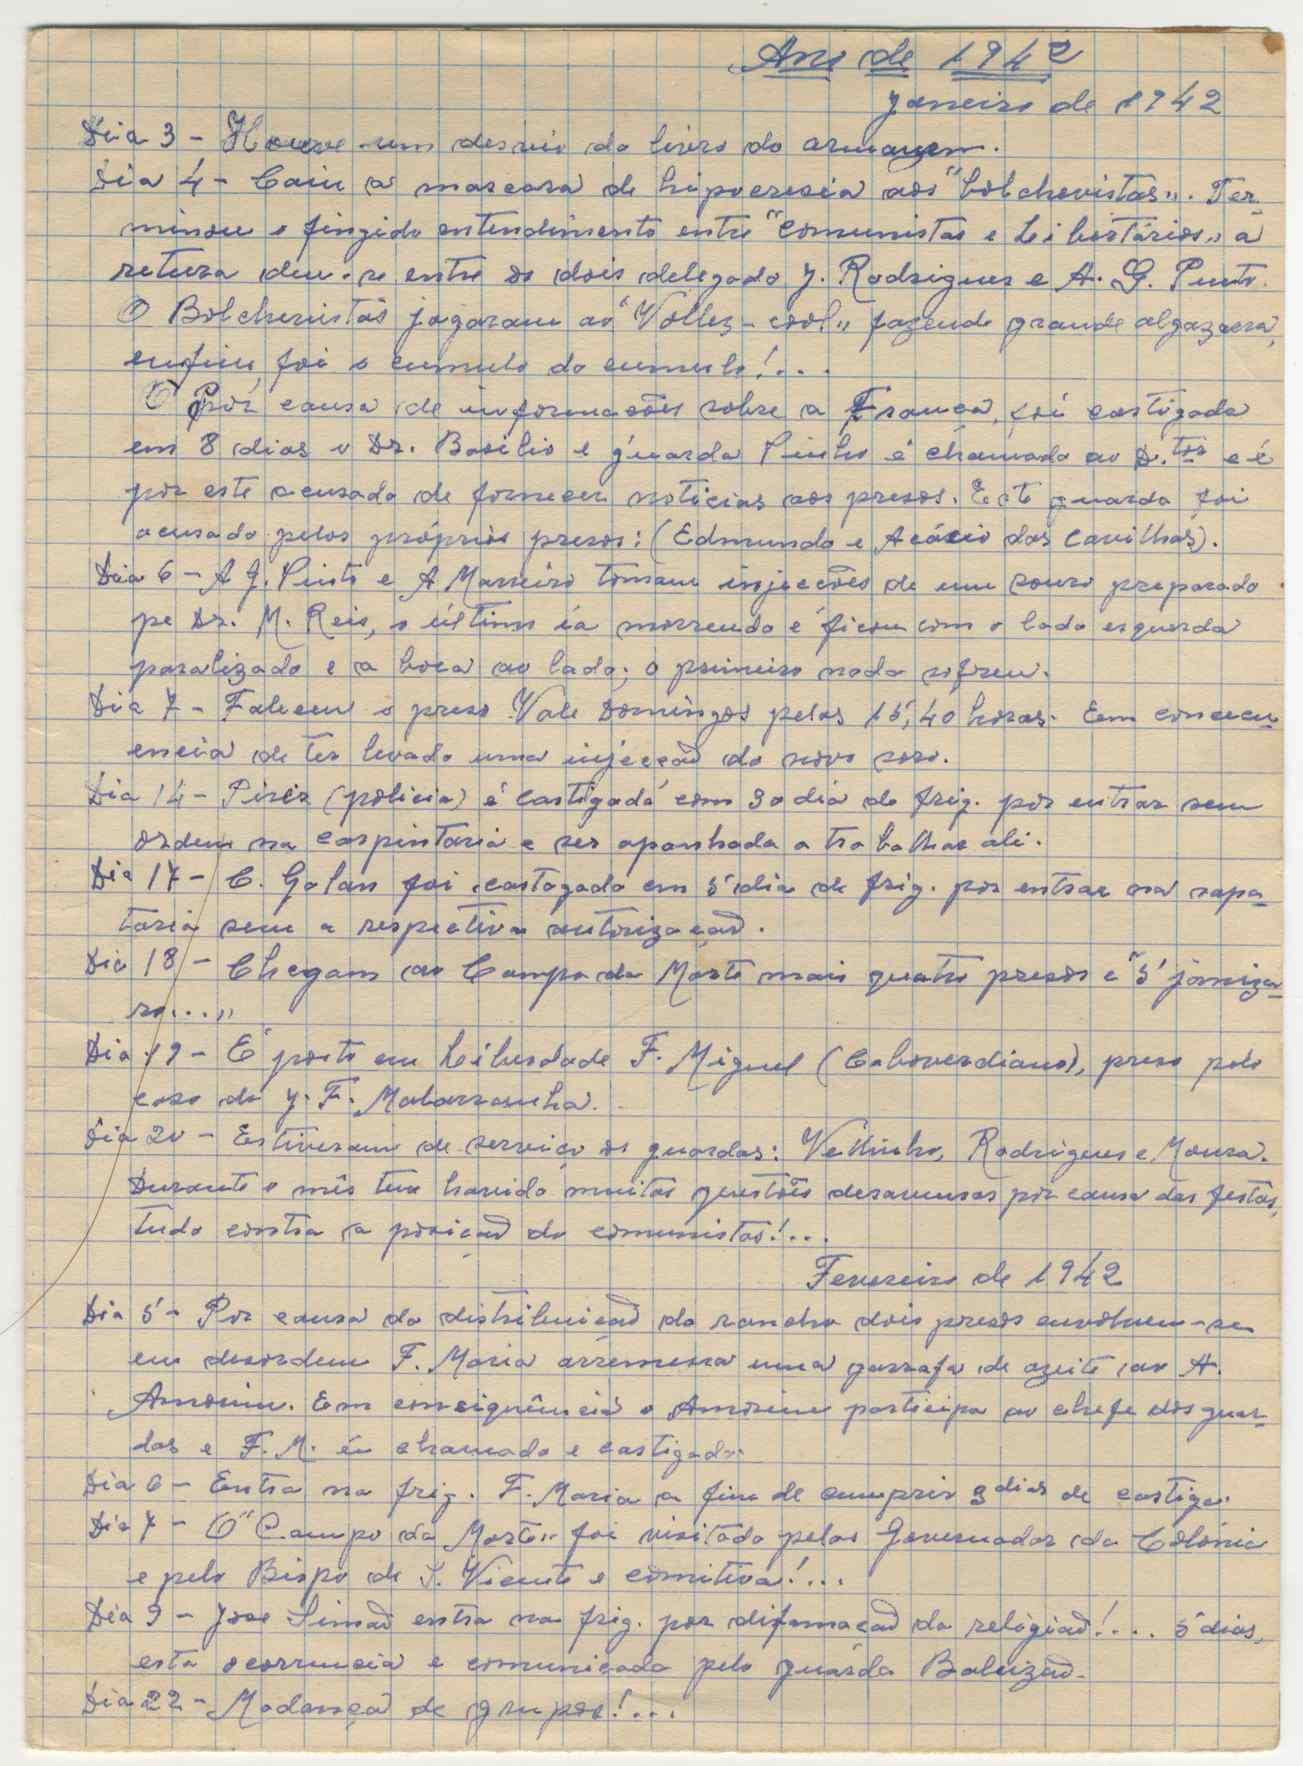 Ano de 1942
Janeiro de 1942
Dia 3 - Houve um desvio do livro do armazem.
Dia 4 - Caiu a mascara de hipocresia aos "bolchevistas". Ter-
minou o fingido entendimento entre "comunistas e Libertários" a
retura deu-se entre os dois delegado J. Rodrigues e A. G. Pinto.
O Bolchevistas jogaram ao "Volley-bool" fazendo grande algazarra,
enfim foi o cumulo do cumulo!...
Pôr causa de informações sobre a França, foi castigado
em 8 dias o Dr. Basilio e guarda Pinho é chamado ao D.tor e é
por este acusado de fornecer noticias aos presos. Este guarda foi
acusado pelos próprios presos: (Edmundo e Acácio das Cavilhas).
Dia 6 - A J. Pinto e A Marreiro tomam injecções de um souro preparado
pe Dr. M. Reis, o último ía morrendo e ficou com o lado esquerdo
paralizado e a boca ao lado; o primeiro nada sofreu.
Dia 7 - Faleceu o preso Vale Domingos pelas 15,40 horas. Em concecu-
encia de ter levado uma injecção do novo soro.
Dia 14 - Pires (policia) é castigado com 30 dia de frig. por entrar sem
ordem na carpintaria e ser apanhado a trabalhar ali.
Dia 17 - C. Galan foi castogado em 5 dia de frig. por entrar na sapa-
taria sem a respectiva autorização.
Dia 18 - Chegam ao Campo da Morte mais quatro presos e "5 janiza-
ro..."
Dia 19 - É posto em Liberdade F. Miguel (Caboverdiano), preso pelo
caso do J. F. Malarranha.
Dia 20 - Estiveram de serviço os guardas: Velhinho, Rodrigues e Moura.
Durante o mês tem havido muitas questões desavensas por causa das festas,
tudo contra a posição do comunistas!...
Fevereiro de 1942
Dia 5 - Por causa da distribuição do rancho dois presos envolvem-se
em desordem F. Maria arremessa uma garrafa de azeite ao A.
Amorim. Em consiquência o Amorim participa ao chefe dos guar-
das e F. M. é chamado e castigado.
Dia 6 - Entra na frig. F. Maria a fim de cumprir 3 dias de castigo.
Dia 7 - O "Campo da Morte" foi visitado pelos Governador da Colónia
e pelo Bispo de S. Vicente e comitiva!...
Dia 9 - Jose Simão entra na frig. por difamação da religião!... 5 dias,
esta ocorrencia e comunicada pelo guarda Baleizão.
Dia 22 - Modança de grupos!...